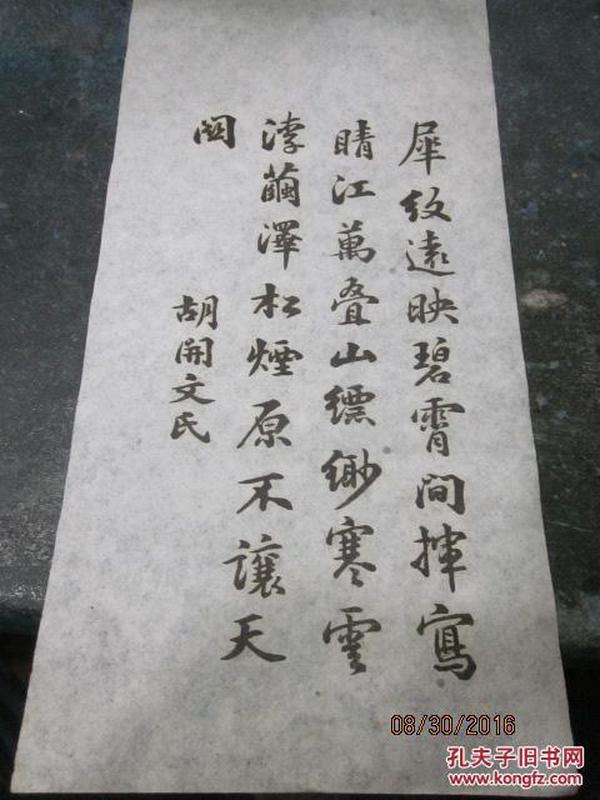 犀紋遠映碧霄間揮寫
晴江萬叠山縹緲寒雲
澤松煙原不讓天
關
胡開文氏
08/30/2016
孔夫子旧书网
www.kongfz.com